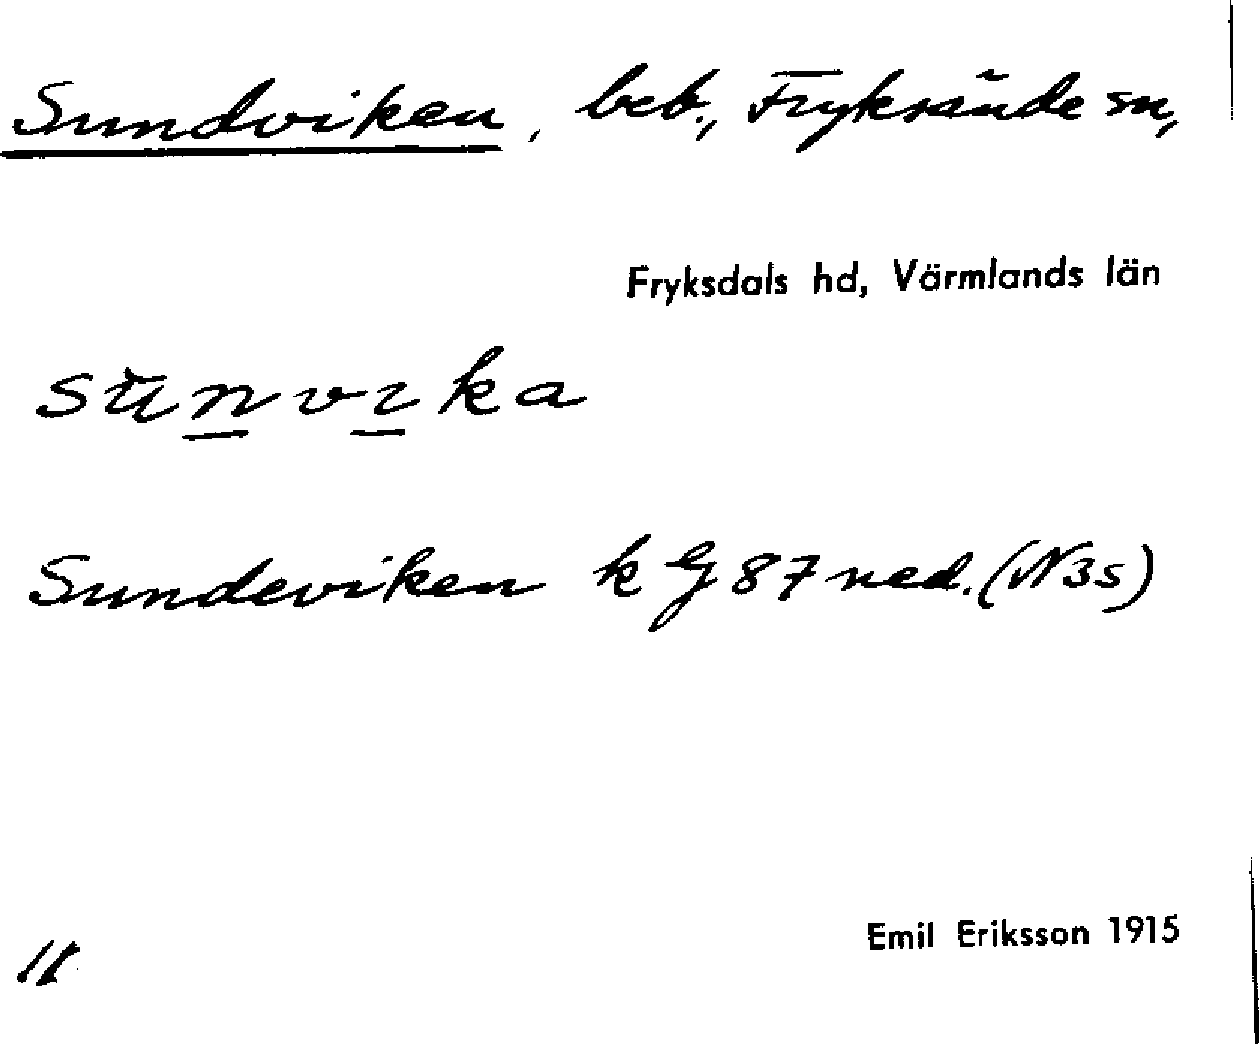 Sundviken, beb., Fryksände sn,
Fryksdals hd, Värmlands län
sŭnvika
Sundeviken k G 87 ned. (N3s)
Emil Eriksson 1915